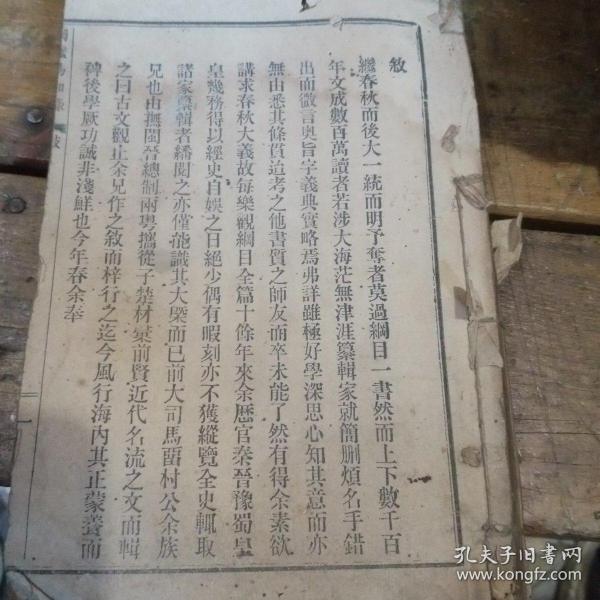 敘
繼春秋而後大一統而明予奪者莫過綱目一書然而上下數千百
年文成數百萬讀者若涉大海茫無津涯纂輯家就簡刪煩名手錯
出而微言奧旨字義典實略焉弗詳雖極好學深思心知其意而亦
無由悉其條貫迨考之他書質之師友而卒未能了然有得余素欲
講求春秋大義故每樂觀綱目全篇十餘年來余歷官秦晉豫蜀皇
皇幾務得以經史自娛之日絕少偶有暇刻亦不獲縱覽全史輒取
諸家纂輯者繙閱之亦僅能識其大槩而已前大司馬畱村公余族
兄也由撫閩晉總制兩粵攜從子楚材彙前賢近代名流之文而輯
之曰古文觀止余兄作之敘而梓行之迄今風行海內其正蒙養而
裨後學厥功誠非淺鮮也今年春余奉
一
孔夫子旧书网
www.kongfz.com